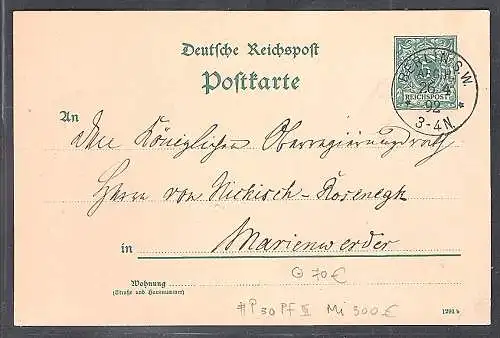 Deutsche Reichspost
Postkarte
BERLIN, S.W.
26 4
92
3-4N.
REICHSPOST
An
Den Königlichen Oberregierungsrath
Herrn von Nickisch-Rosenegk
in Marienwerder
Wohnung
(Straße und Hausnummer)
70€
P 30 Pf III Mi 300€
1291 b